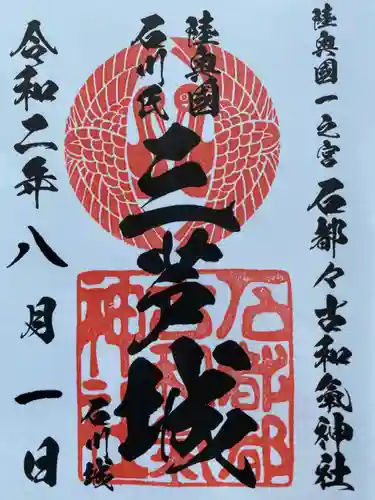 陸奥國一之宮 石都々古和氣神社
陸奥國
石川氏
三芦城
石川城
令和二年八月一日